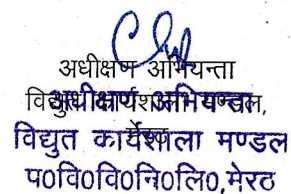 अधीक्षण अभियन्ता
विद्युत कार्यशाला मण्डल,
मेरठ
अधीक्षण अभियन्ता
विद्युत कार्यशाला मण्डल
प०वि०वि०नि०लि०,मेरठ